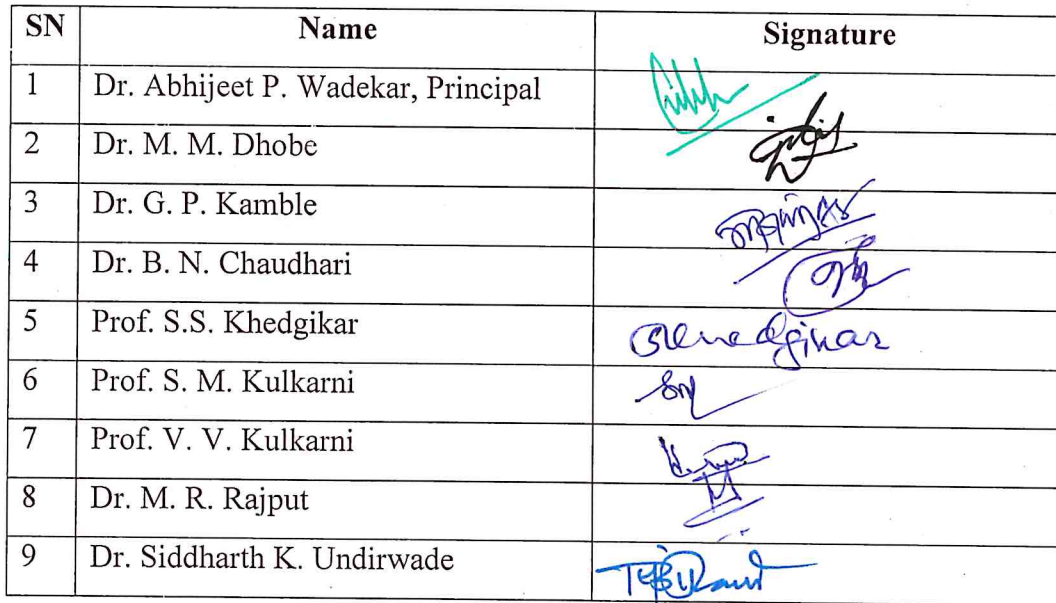 SN Name Signature
1 Dr. Abhijeet P. Wadekar, Principal
2 Dr. M. M. Dhobe
3 Dr. G. P. Kamble
4 Dr. B. N. Chaudhari
5 Prof. S.S. Khedgikar
6 Prof. S. M. Kulkarni
7 Prof. V. V. Kulkarni
8 Dr. M. R. Rajput
9 Dr. Siddharth K. Undirwade